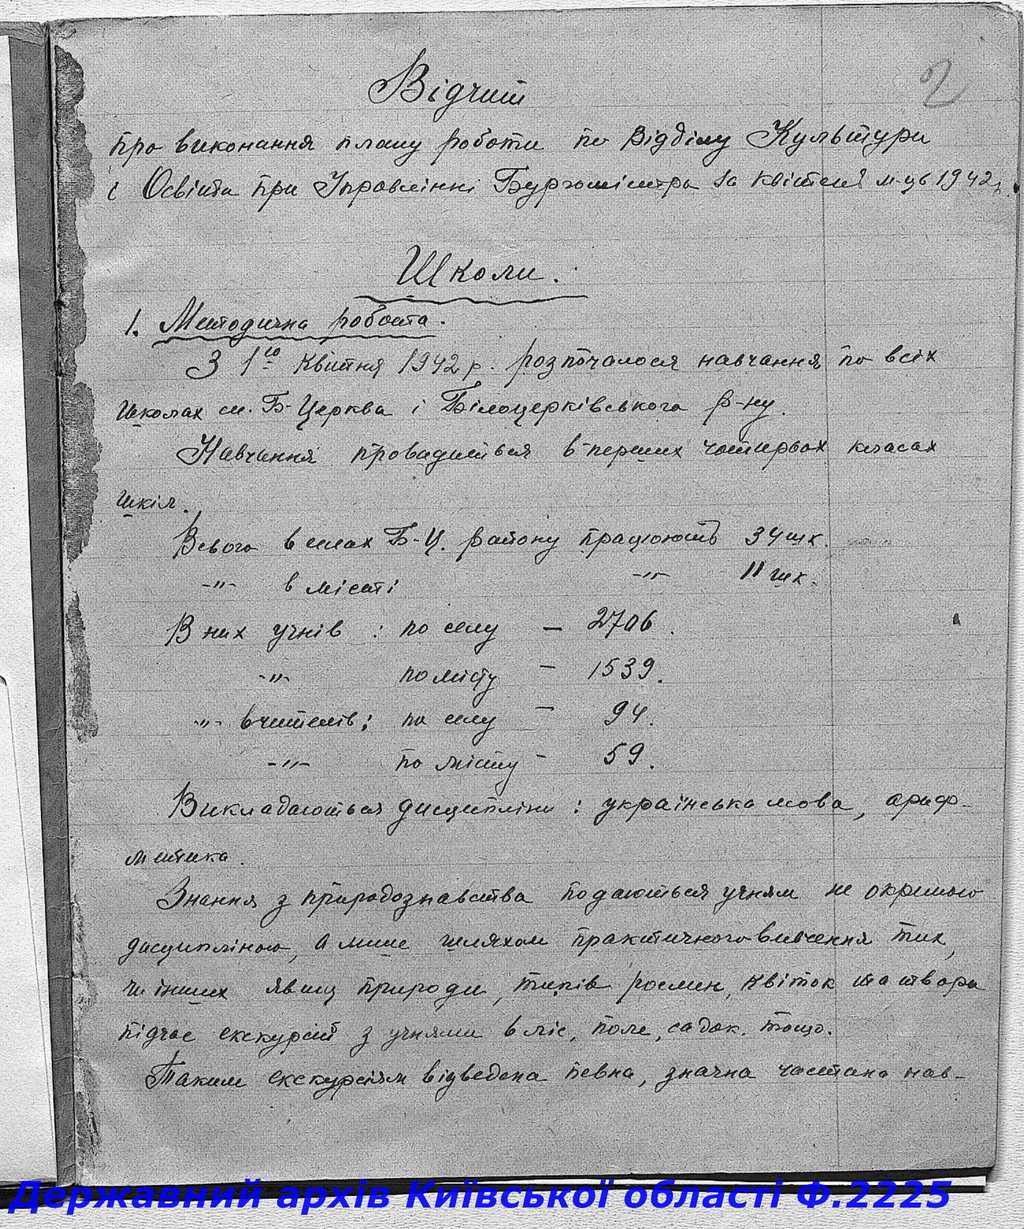 2
Відчит
про виконання плану роботи по Відділу Культури
і Освіти при Управлінні Бургомістра за квітень м-ць 1942 р.
Школи.
1. Методична робота.
З 1го квітня 1942 р. розпочалося навчання по всіх
школах м. Б-Церква і Білоцерківського р-ну.
Навчання провадиться в перших чотирьох класах
шкіл.
Всього в селах Б-Ц. району працюють 34 шк.
-"- в місті -"- 11 шк.
В них учнів : по селу — 2706.
-"- по місту — 1539.
-"- вчителів : по селу — 94.
-"- по місту — 59.
Викладаються дисципліни : українська мова, ариф-
метика.
Знання з природознавства подаються учням не окремою
дисципліною, а лише шляхом практичного вивчення тих,
чи інших явищ природи, типів рослин, квіток та твари
підчас екскурсій з учнями в ліс, поле, садок. тощо.
Таким екскурсіям відведена певна, значна частина нав-
Державний архів Київської області Ф.2225